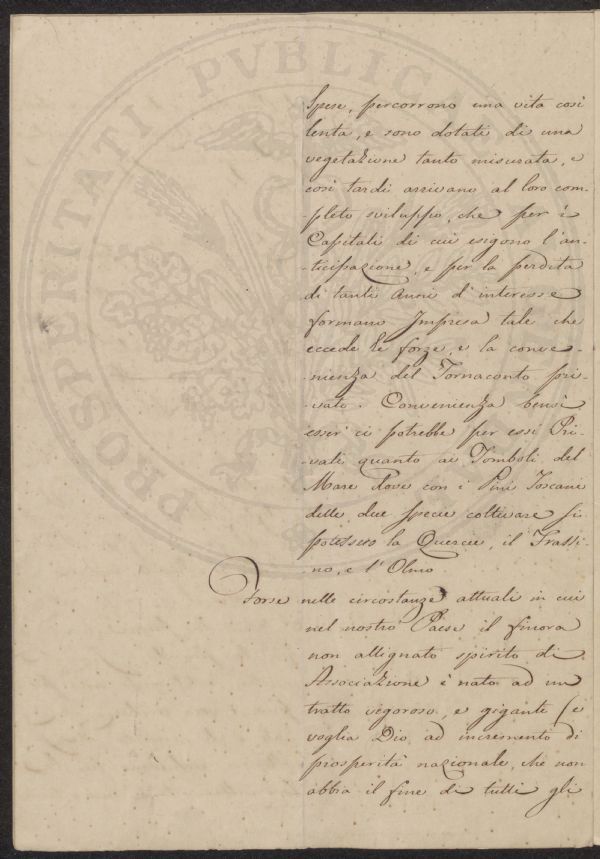 PROSPERITATI PVBLICAE
Spese, percorrono una vita così
lenta, e sono dotati di una
vegetazione tanto misurata, e
così tardi arrivano al loro com-
-pleto sviluppo, che per i
Capitali di cui esigono l'an-
-ticipazione, e per la perdita
di tanti Anni d'interesse
formano Impresa tale che
eccede le forze, e la conve-
-nienza del Tornaconto pri-
-vato. Convenienza bensì
esser ci potrebbe per essi Pri-
-vati quanto ai Tomboli del
Mare dove con i Pini Toscani
delle due specie coltivare si
potessero la Quercie, il Frassi-
-no, e l'Olmo.
Forse nelle circostanze attuali in cui
nel nostro Paese il finora
non allignato spirito di
Associazione è nato ad un
tratto vegoroso, e gigante (e
voglia Dio, ad incremento di
prosperità nazionale, che non
abbia il fine di tutti gli